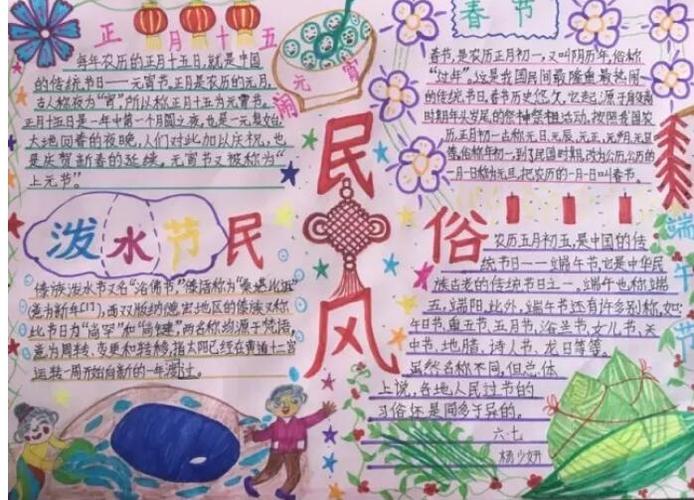 正月十五
每年农历的正月十五日,就是中国
的传统节日——元宵节。正月是农历的元月,
古人称夜为“宵”,所以称正月十五为元宵节。
正月十五日是一年中第一个月圆之夜,也是一元复始
大地回春的夜晚,人们对此加以庆祝,也
是庆贺新春的延续。元宵节又被称为“
上元节”。
闹元宵
春节
春节,是农历正月初一,又叫阴历年,俗称
“过年”,这是我国民间最隆重最热闹
的传统节日。春节历史悠久,它起源于殷商
时期年头岁尾的祭神祭祖活动。按照我国农
历,正月初一古称元日、元辰、元正、元朔、元旦
等,俗称年初一,到了民国时期,改为公历,公历的
一月一日称为元旦,把农历的一月一日叫春节。
民
风
民
俗
泼水节
傣族泼水节又名“浴佛节”,傣语称为“
意为新年
比节日为“尚罕”和“尚键”,两名称均源于梵语,
意为周转、变更和转移,指太阳已经在黄道十二宫
运转一周开始向新的一年过
端午节
农历五月初五,是中国的传
统节日——端午节,它是中华民
族古老的传统节日之一。端午也称端
五,端阳。此外,端午节还有许多别称,如:
午日节、重五节、五月节、浴兰节、女儿节、天
中节、地腊、诗人节、龙日等等。
虽然名称不同,但总体
上说,各地人民过节的
习俗还是同多于异的。
六·七
杨少妍